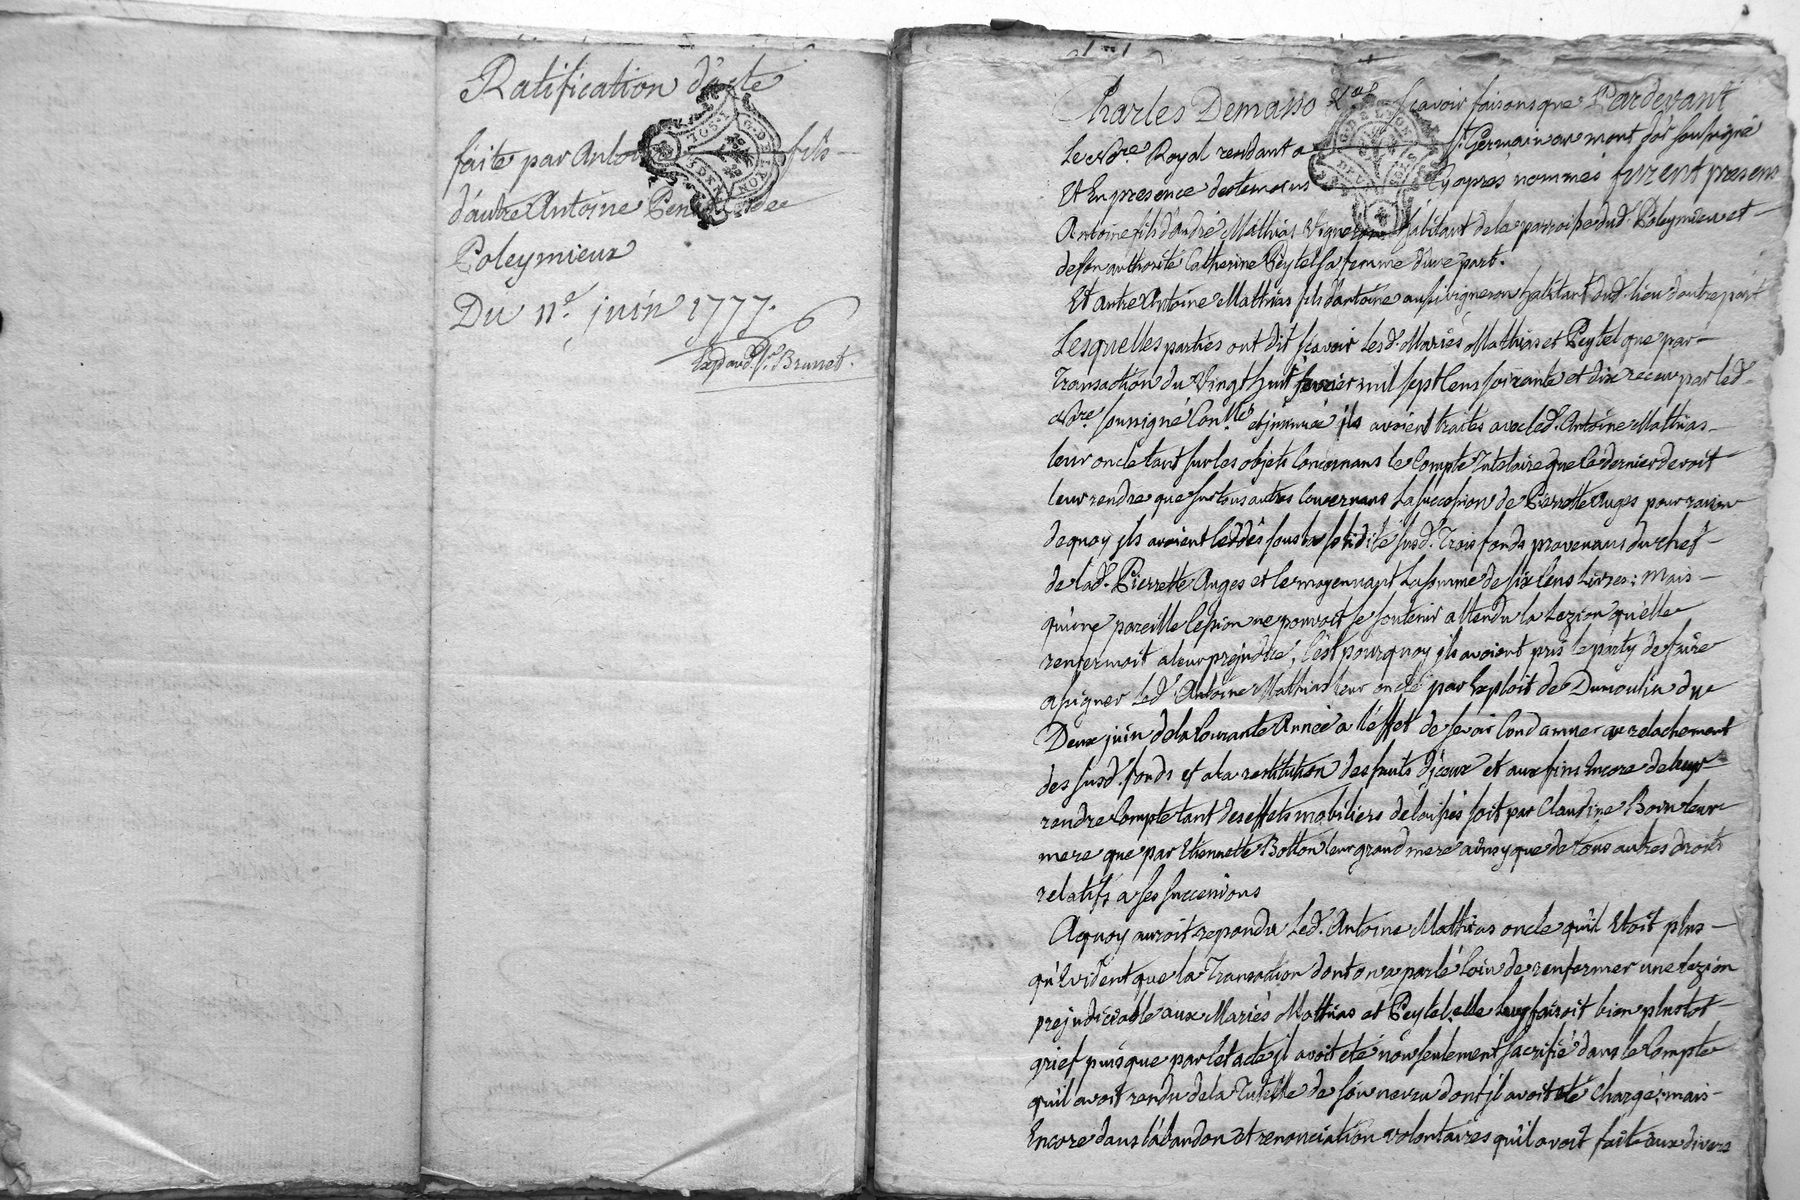 Ratification d'acte
faite par Antoine fils
d'autre Antoine de
Poleymieux
Du 11e. juin 1777.
Exp. au d. Sr. Brunet.
Charles Demasso &a. sçavoir faisons que Pardevant
Le Nore Royal rendant a St. Germain au mont d'or soussigné
Et En presence des temoins Cy apres nommés furent presens
Antoine fils d'andré Mathias Vigneron habitant de la parroisse dud. Poleymieux et
de son authorité Catherine Peytel sa femme d'une part.
Et autre Antoine Mathias fils d'antoine aussi vigneron habitant dud. lieu d'autre part
Lesquelles parties ont dit sçavoir Lesd. Mariés Mathias et Peytel que par
Transaction du Vingt huit fevrier mil sept Cens soixante et dix receu par led.
Nore soussigné Conllé et insinuée ils avoient traités avec led. Antoine Mathias
leur oncle tant sur les objets Concernans le Compte Tutelaire que Ce dernier devoit
leur rendre que sur tous autres Concernans La succession de Pierrette Auges pour raison
de quoy ils avoient Cédés sous la solidité susd. Trois fonds provenans du chef
de lad. Pierrette Auges et Ce moyennant La somme de six Cens Livres: Mais
qu'une pareille Cession ne pouvoit se soutenir attendu la Lezion qu'elle
renfermoit a leur prejudice, C'est pourquoy ils avoient pris le party de faire
assigner Led. Antoine Mathias leur oncle par Exploit de Dumoulin du
Deux juin de la Courante Année a l'effet de se voir Condamner au relachement
des susd. fonds et a la restitution des fruits d'iceux et aux fins Encore de leur
rendre Compte tant des effets mobiliers delaissés soit par Claudine Boin leur
mere que par Etiennette Botton leur grand mere ainsy que de tous autres droits
relatifs a ses successions
A quoy auroit repondu Led. Antoine Mathias oncle qu'il Etoit plus
qu'Evident que la Transaction dont on a parlé Loin de renfermer une lezion
prejudiciable aux Mariés Mathias et Peytel elle Luy faisoit bien plustot
grief puisque par Cet acte il avoit eté non seulement sacrifié dans le Compte
qu'il avoit rendu de la Tutelle de son neveu dont il avoit eté Chargé; mais
Encore dans l'abandon et renonciation volontaires qu'il avoit fait aux divers